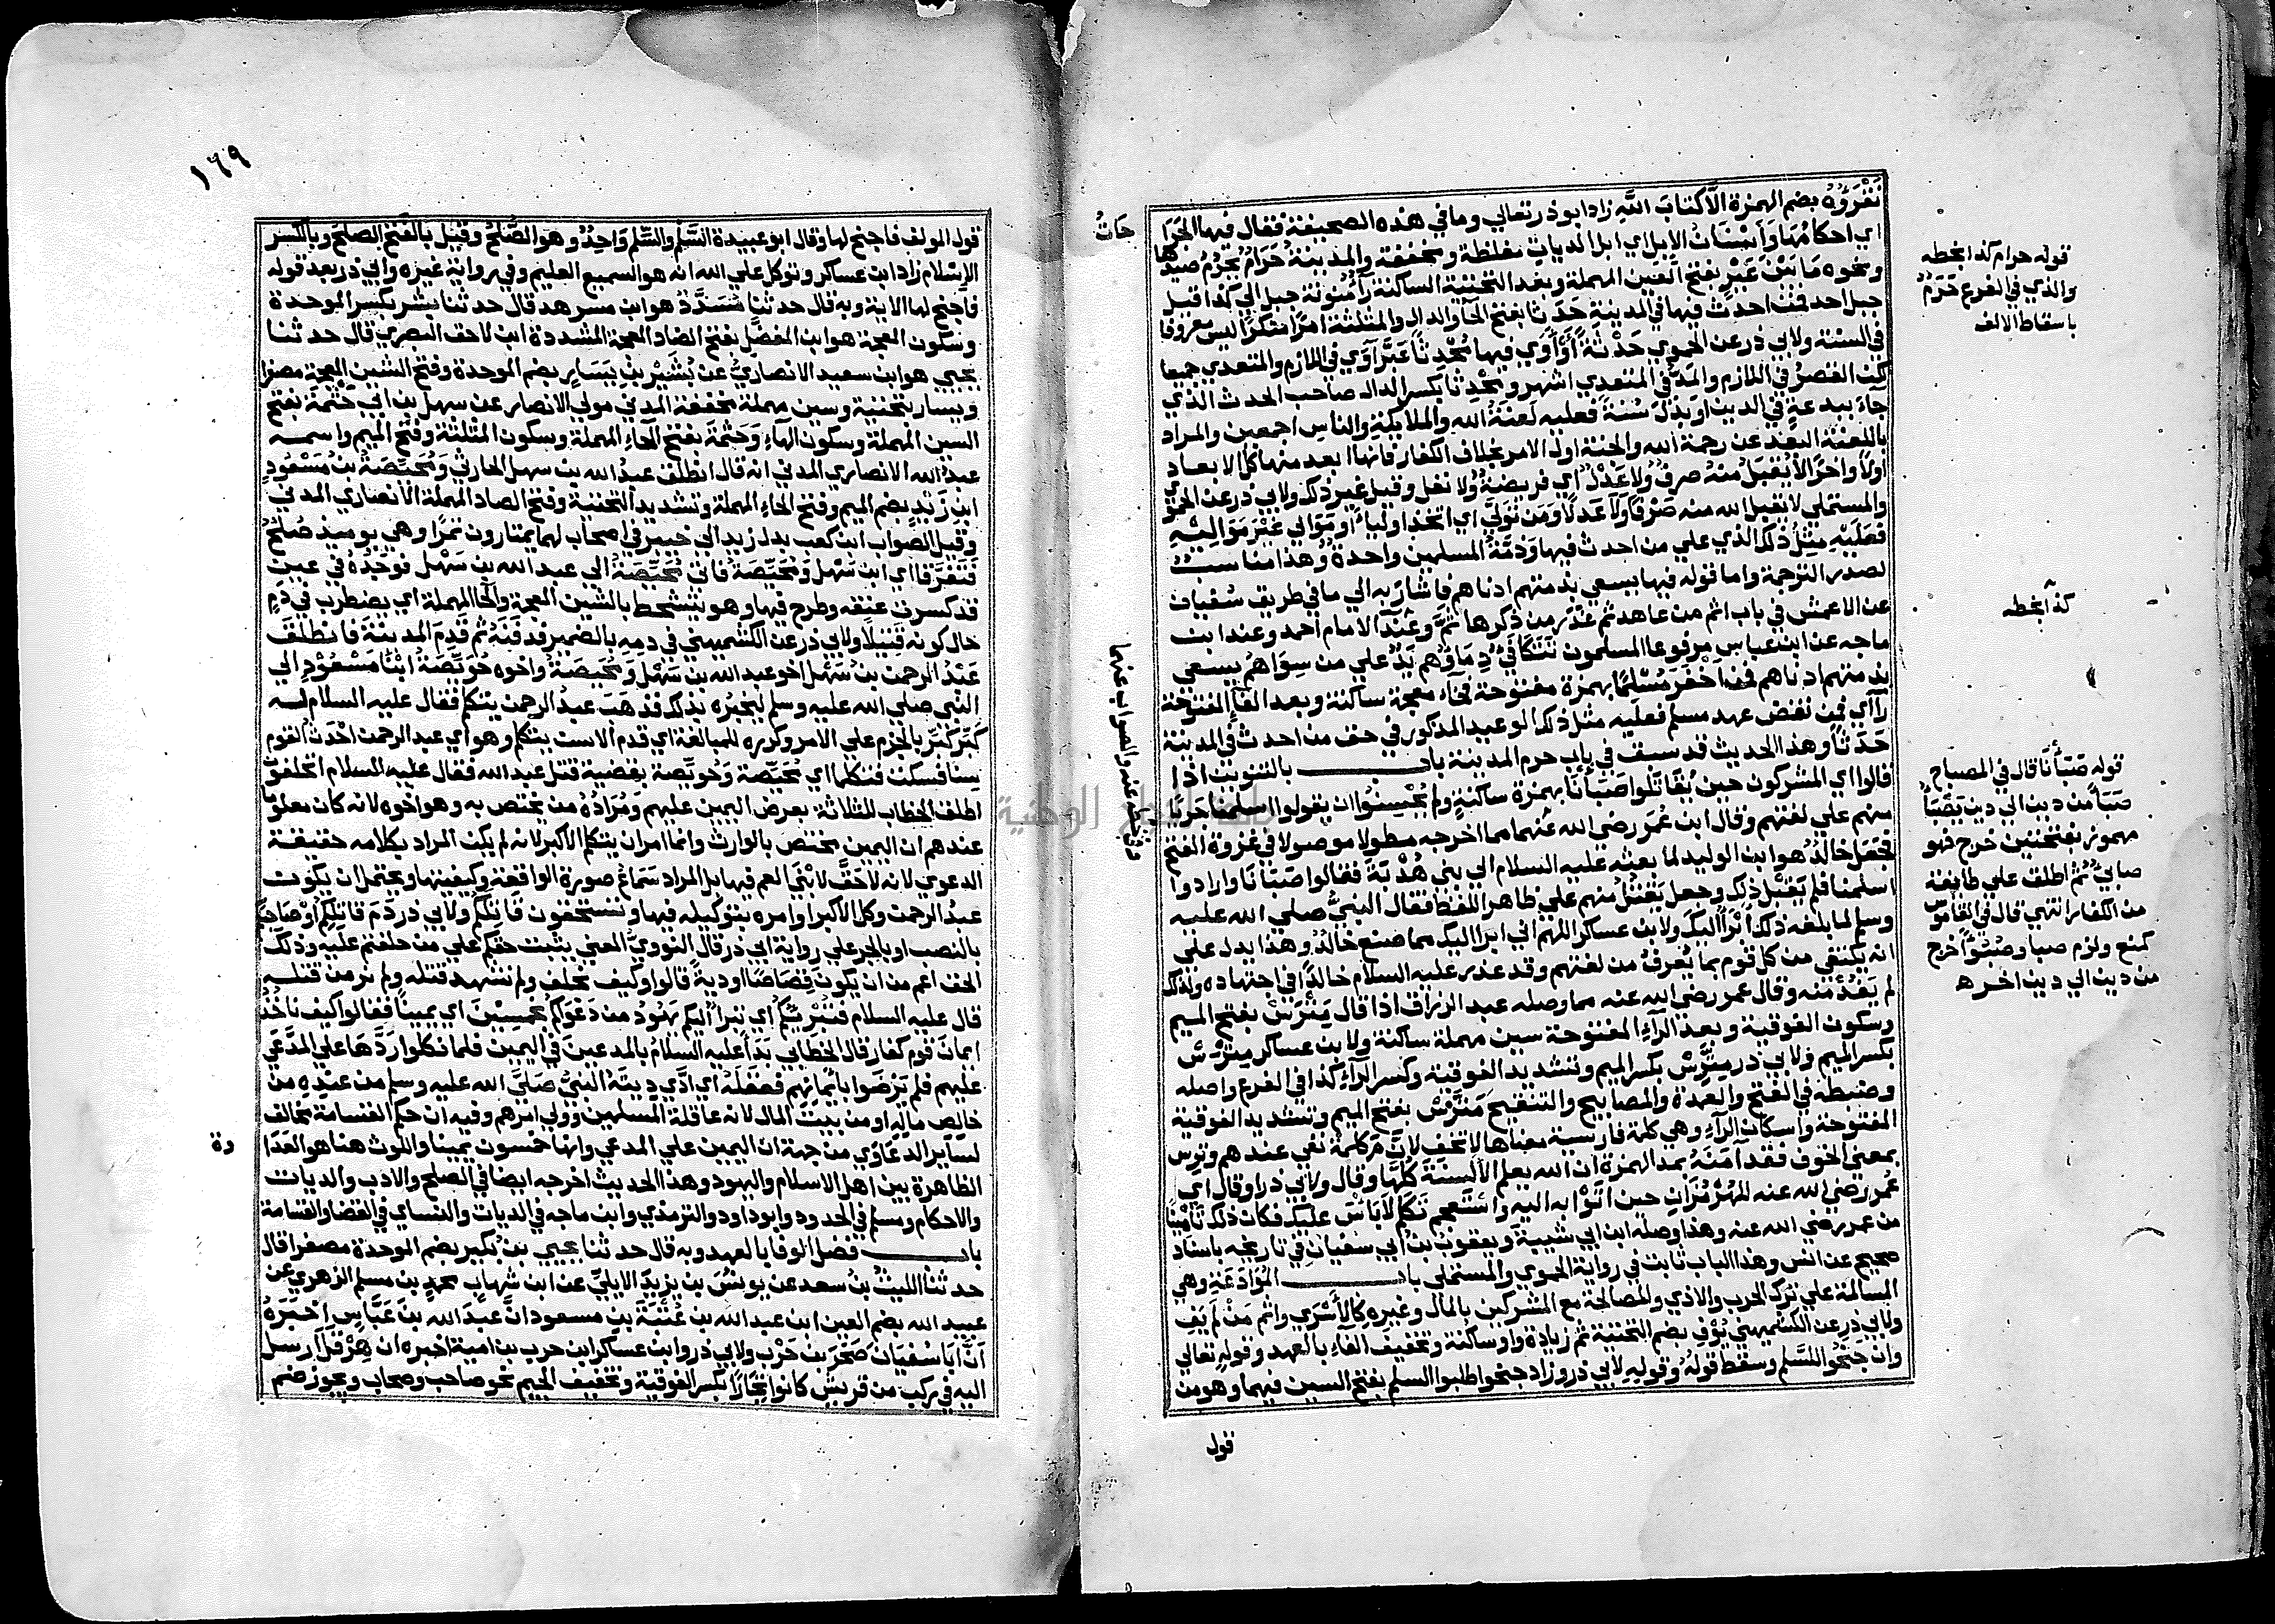 نَقْرَؤُهُ بضم الهمزة الَّا كتابَ اللّه زاد ابو ذر تعالي وما في هذه الصحيفة فقال فيها الجراحاتُ
اي احكامُها وَاَسْنَانُ الإبل اي ابل الديات مغلظة ومخففة والمدينةُ حَرَامٌ يَحْرُمُ صيدها
ونحوه مَا بَيْنَ عَيْرٍ بفتح العين المهملة وبعد التحتية الساكنة رآءٌ منونة جبل الي كذا قيل
جبل احد فمن احدث فيها في المدينة حَدَثًا بفتح الحآ والدال والمثلثة امرًا منكرًا ليس معروفا
في السنة ولابي ذر عن الحموي حَدْثَةً أَوْ أوي فيها مُحْدِثًا عَبَّرَ آوَي في اللازم والمتعدي جميعا
لكن القصرُ في اللازم والمَدُّ في المتعدي اشهر ومُحْدِثًا بكسر الدال صاحب الحدث الذي
جآءَ ببدعةٍ في الدين او بَدَّلَ سُنةً فعليه لعنةُ الله والملايكةِ والناسِ اجمعين والمراد
باللعنة البعد عن رحمة الله والجنة اول الامر بخلاف الكفار فانها ابعد منها كل الابعاد
اولًا واخرًا لا يُقبَلُ منهُ صرفٌ ولا عَدْلٌ اي فريضةٌ ولا نفل وقيل غير ذلك ولابي ذر عن الحموي
والمستملي لا يقبل الله منه صَرْفًا وَلاَ عَدلًا وَمَن تَوَلَّي اي اتخذ اولياءً او مَوَالي غَيْرَ مَوَالِيْهِ
فعَلَيْهِ مِثْلُ ذلك الذي علي من احدث فيها وَذِمَّةُ المسلمين واحدةٌ وهذا مناسبٌ
لصدر الترجمة واما قوله فيها يسعي بذمتهم ادناهم فاشار به الي ما في طريق سُفيان
عن الاعمش في باب اثم من عاهد ثم غدر من ذكرها ثَمَّ وعند الامام احمد وعند ابن
ماجه عن ابن عباس مرفوعا المسلمون تَتَكَافَيُ دِمَاؤُهم وهم يَدٌ علي من سِوَاهُم يسعي
بذمتهم ادناهم فمن اخْفَرَ مُسْلِمًا بهمزة مفتوحة فخآء معجمة ساكنة وبعد الفآءِ المفتوحة
رآ اي فمن نقض عهد مسلم فعليه مثل ذلك الوعيد المذكور في حق من احدث في المدينة
حَدَثًا وهذا الحديث قد سبق في باب حرم المدينة بابـــــــــ بالتنوين اذا
قالوا اي المشركون حين يُقاتَلُوا صَبَأْنَا بهمزة ساكنةٍ ولم يُحْسِنُوا ان يقولوا اسلمنا جَريًا
منهم علي لغتهم وقال ابن عُمَر رضي الله عنهما مما اخرجه مطولا موصولا في غزوة الفتح
فجعَلَ خالدٌ هو ابن الوليد لما بعثه عليه السلام الي بني هُذْبَةَ فقالوا صَبَانَا وارادوا
اسلمنا فلم يَقبل ذلك وجعل يَقتلُ منهم علي ظاهر اللفظ فقال النبيُّ صلي الله عليه
وسلم لما بلغه ذلك أَبْرَأُ اليكَ ولابن عساكر اللهم اني ابرا اليك مما صنع خالدٌ وهذا يدل علي
انه يكتفي من كل قوم بما يُعرفُ من لغتهم وقد عذر عليه السلام خالدًا في اجتهاده ولذلك
لم يَقُدْ منه وقال عمر رضي الله عنه مما وصله عبد الرزاق اذا قال مَتْرَسْ بفتح الميم
وسكون الفوقية وبعد الرآءِ المفتوحة سين مهملة ساكنة ولابن عساكر مِتْرَسْ
بكسر الميم ولابي ذر مِتَّرِسْ بكسر الميم وتشديد الفوقية وكسر الرآءِ كذا في الفرع واصله
وضبطه في الفتح والعمدة والمصابيح والتنقيح مَتَّرْسْ بفتح الميم وتشديد الفوقية
المفتوحة واسكان الرآءِ وهي كلمة فارسية معناها لا تخف لانَّ مَ كلمة نفي عندهم وترس
بمعني الخوف فقد آمَنَهُ بمد الهمزة ان الله يعلم الألسنةَ كلَّها وقال ولابي ذر او قال اي
عُمر رضي الله عنه للهُرْمُزَان حين اتَوْا به اليه واستَعجم تكلّم لاَبَأْسَ عليك فكان ذلك تأمينًا
من عمر رضي الله عنه وهذا وصله ابن ابي شيبة ويعقوب بنُ ابي سفيان في تاريخه باسناد
صحيح عن انس وهذا الباب ثابت في رواية الحموي والمستملي بابـــــــــ المُوَادَعَةِ وهي
المسالمة علي ترك الحرب والاذي والمصالحةِ مع المشركين بالمال وغيره كالأَسْري واثم مَنْ لم يَفِ
ولابي ذر عن الكشميهني يُوْفِ بضم التحتية ثم زيادة واو ساكنة وتخفيف الفاء بالعهد وقوله تعالي
وان جَنَحُوْا للسَّلم وسقط قولهُ وقوله لابي ذر وزاد جنحوا طلبوا السلم بفتح السين فيهما وهو من
قول
قوله حرام كذا بخطه
والذي في الفرع حَرَمٌ
باسقاط الالف
كذا بخطه
قوله صَبَأْنَا قال في المصباح
صَبَأَ من دين الي دين يَصْبَأُ
مهموز بفتحتين خرج فهو
صابئٌ ثم اطلق علي طايفة
من الكفار انتهي قال في القاموس
كمنع وكرم صبا وصُبُوْءًا خرج
من دين الي دين اخر ه
عنه والصواب عنهما
١٦٩
قول المولف فاجنح لها وقال ابو عبيدة السَّلم والسِّلم وَاحِدٌ وهو الصُّلحُ وقيل بالفتح الصلحُ وبالكسر
الاِسْلام زاد ابن عساكر وتوكل علي الله انه هو السميع العليم وفي رواية غيره وابي ذر بعد قوله
فاجنح لها الاية وبه قال حدثنا مُسَدَّدٌ هو ابن مسرهد قال حدثنا بشر بكسر الموحدة
وسكون المعجمة هو ابن المفضل بفتح الضاد المعجمة المشددة ابن لاحق البصري قال حدثنا
يحيي هو ابن سعيد الانصاريُّ عن بُشَيْرِ بْنِ يَسَارٍ بضم الموحدة وفتح الشين المعجمة مصغرا
ويسار بتحتية وسين مهملة مخففة المدني مولي الانصار عن سهل بن ابي حَثْمَةَ بفتح
السين المهملة وسكون الهاءِ وَحَثْمَةَ بفتح الحاءِ المهملة وسكون المثلثة وفتح الميم واسمه
عبدُ الله الانصاري المدني انه قال انطلق عبدُ الله بن سهل الحارثي وَمُحَيِّصَةُ بنُ مَسْعُودِ
ابن زَيْدٍ بضم الميم وفتح الحاءِ المهملة وتشديد التحتية وفتح الصاد المهملة الانصاري المدني
وقيل الصواب ابن كعب بدل زيد الي خيبر في اصحاب لهما يمتارون تمرًا وهي يوميذ صُلْحٌ
فَتَفَرَّقَا اي ابن سَهْل وَمُحَيِّصَةُ فاتي مُحَيِّصَةُ الي عبد الله بن سَهْل فوَجَدَهُ في عين
قد كسرت عنقه وطرح فيها وهو يتشحط بالشين المعجمة والحا المهملة اي يضطرب في دَمٍ
حال كونه قَتِيلًا ولابي ذر عن الكشميهني في دمه بالضمير فدفَنَهُ ثم قَدِمَ المدينةَ فانطَلَقَ
عَبْدُ الرحمن بنُ سَهْل اخو عبد الله بن سَهْل وَمُحَيِّصَةُ واخوه حُوَيِّصَةُ ابْنَا مَسْعُوْدٍ الي
النبي صلي الله عليه وسلم ليخبرُه بذلك فذهَبَ عبدُ الرحمن يتكلم فقال عليه السلام له
كَبِّرْ كَبِّرْ بالجزم علي الامر وكرره للمبالغة اي قدم الاسن يتكلم وهو اي عبد الرحمن احْدَثُ القوم
سِنًا فسكت فتكلما اي مُحَيِّصَة وَحُوَيِّصة بقضية قتل عبد الله فقال عليه السلام اتحلفون
اطلق الخطاب للثلاثة بعرض اليمين عليهم وَمُرَادُهُ من يختص به وهو اخوه لانه كان معلومًا
عندهم ان اليمين يختص بالوارث وانما امر ان يتكلم الاكبر لانه لم يكن المراد بكلامه حقيقة
الدعوي لانه لاحَقَّ لابْنَيِ العم فيها بل المراد سَمَاعُ صورة الواقعة وكيفيتها ويحتمل ان يكون
عبدُ الرحمن وكل الاكبر او امره بتوكيله فيها وتستحقون قاتلكم ولابي ذر دَمَ قاتِلِكُم او صَاحبِكُم
بالنصب او بالجر علي رواية ابي ذر قال النوويُّ المعني يثبت حقكم علي من حلفتم عليه وذلك
الحق اعم من ان يكونَ قِصَاصًا او ديةً قالوا وكيف نحلف ولم نشهد قتله ولم نر من قتله
قال عليه السلام فتُبْرِيْكُم اي تبرأُ اليكم يَهُوْدُ من دَعْوَاكم بخمسِيْنَ اي يمينًا فقالوا كيف ناخُذُ
ايمانَ قوم كفار قال الخطابي بَدَأَ عليه السلامُ بالمدعينَ في اليمين فلما نكلوا رَدَّهَا علي المدَّعَي
عليهم فلم يَرْضَوا بأيْمَانِهِم فعَقَلَهُ اي ادَّي دِيَتَهُ النبيُّ صَلَيَ الله عليه وسلم من عنِدِه من
خالِصِ مالِهِ او من بيت المال لانه عاقلة المسلمين وولي امرهم وفيه ان حكم القسامة يخالف
لساير الدعَاوَي من جهة ان اليمين علي المدعي وانها خمسون يمينا واللوث هنا هو العَدَاوة
الظاهرة بين اهل الاسلام واليهود وهذا الحديث اخرجه ايضا في الصلح والادب والديات
والاحكام ومسلم في الحدود وابو داود والترمذي وابن ماجه في الديات والنساي في القضا والقسامة
بابـــــــــ فضل الوفا بالعهد وبه قال حدثنا يحيي بنُ بُكَيرٍ بضم الموحدة مصغرا قال
حدثنا الليثُ بنُ سعد عن يونُسَ بن يزيدَ الايليِّ عن ابن شهابٍ محمد بن مسلم الزهري عن
عبيد الله بضم العين ابن عبد الله بن عُتْبَةَ بن مسعود انَّ عبدَ الله بنَ عَبَّاسٍ اخبَرَهُ
أَنَّ أبَا سُفيَانَ صَخْرَ بْنَ حَرْبٍ ولابي ذر وابن عساكر ابن حرب بن امية اخبره ان هِرَقْلَ ارسل
اليه في ركب من قريش كانوا تِجَارًا بكسر الفوقية وتخفيف الجيم نحو صاحب وصحاب ويجوز ضم